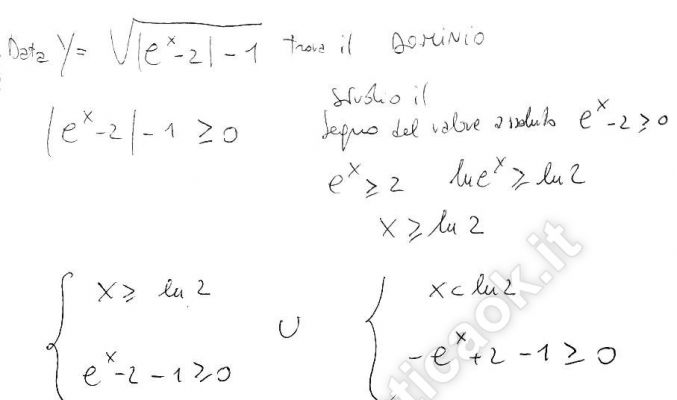 Data y = √|e^x-2|-1 trova il DOMINIO
|e^x-2|-1 ≥ 0
studio il
segno del valore assoluto e^x-2 ≥ 0
e^x ≥ 2 ln e^x ≥ ln 2
x ≥ ln 2
{ x ≥ ln 2
e^x-2-1 ≥ 0
∪
{ x < ln 2
-e^x+2-1 ≥ 0
ticaok.it